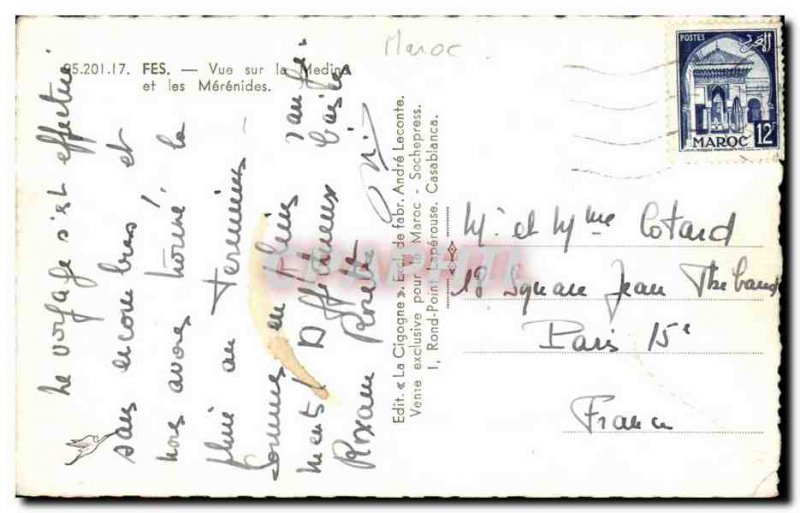 Maroc
95.201.17. FES. — Vue sur la Medina
et les Mérénides.
POSTES
MAROC
12F
Le voyage s'est effectué
sans encombres et
nous avons trouvé la
pluie au Terminus —
Sommes en pleins
ments! Affectueux baisers
Edit. « La Cigogne ». Excl. de fabr. André Leconte.
Vente exclusive pour le Maroc - Sochepress.
1, Rond-Point Lapérouse. Casablanca.
M. et Mme Cotard
18 Square Jean Thebaud
Paris 15e
France